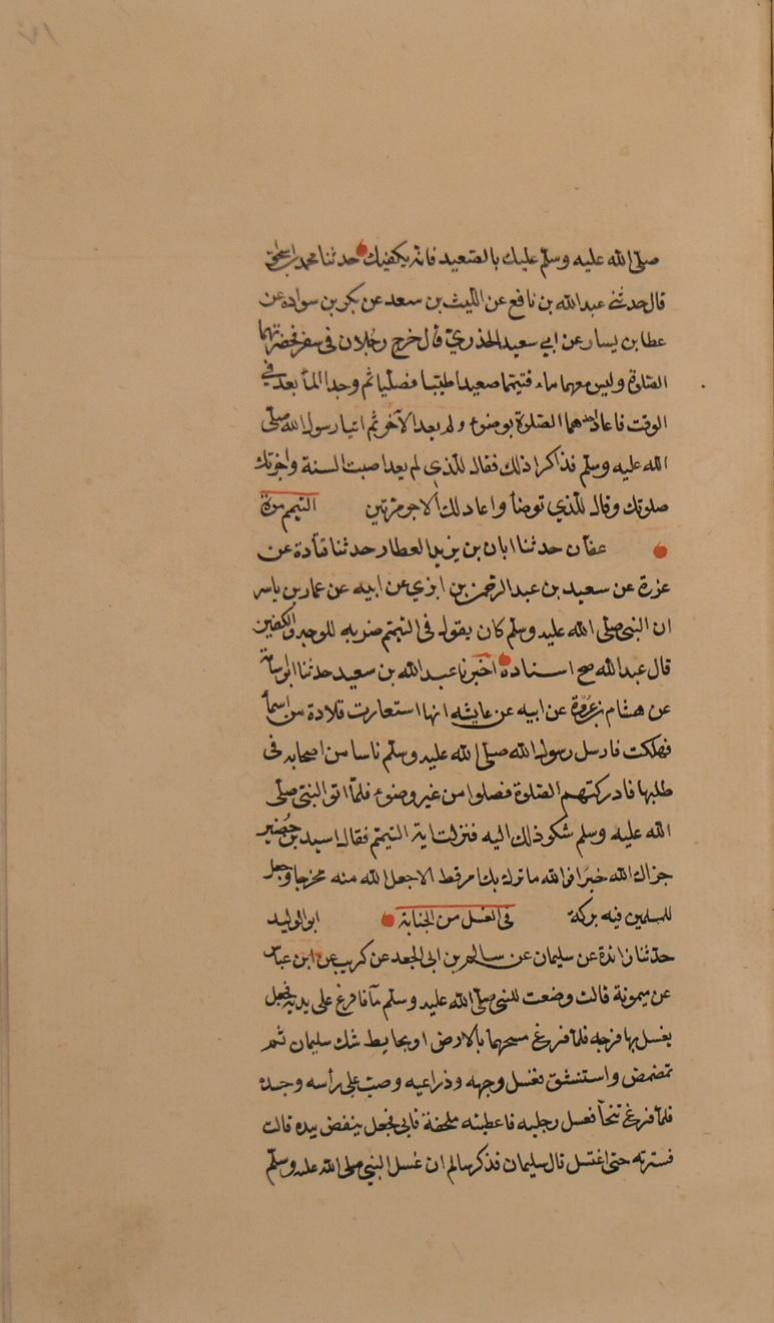 صلى الله عليه وسلم عليك بالصعيد فانه يكفيك حدثنا محمد بن اسحق
قال حدثني عبد الله بن نافع عن الليث بن سعد عن بكر بن سواده عن
عطا بن يسار عن ابي سعيد الخذري قال خرج رجلان فى سفر فحضرتهما
الصلوة وليس معهما ماء فتيمما صعيدا طيبا فصليا ثم وجدا الماء بعد في
الوقت فاعاد احدهما الصلوة بوضوء ولم يعد الآخر ثم اتيا رسول الله صلى
الله عليه وسلم فذاكرا ذلك فقال للذى لم يعد اصبت السنة واجزتك
صلوتك وقال للذي توضأ واعاد لك الاجر مرتين التيمم مرة
عفان حدثنا ابان بن يزيد العطار حدثنا قتادة عن
عزرة عن سعيد بن عبد الرحمن بن ابزي عن ابيه عن عمار بن ياسر
ان النبى صلى الله عليه وسلم كان يقول فى التيمم ضربه للوجه والكفين
قال عبد الله صح اسناده اخبرنا عبد الله بن سعيد حدثنا ابو اسامة
عن هشام بن عروة عن ابيه عن عايشه انها استعارت قلادة من اسمأ
فهلكت فارسل رسول الله صلى الله عليه وسلم ناسا من اصحابه فى
طلبها فادركتهم الصلوة فصلوا من غير وضوء فلما اتو النبى صلى
الله عليه وسلم شكو ذلك اليه فنزلت اية التيمم فقال اسيد بن حضير
جزاك الله خيرا فو الله ما نزل بك امر قط الا جعل الله منه مخرجا وجعل
للمسلمين فيه بركة فى الغسل من الجنابة ابو الوليد
حدثنا زائدة عن سليمان عن سالم بن ابى الجعد عن كريب عن ابن عباس
عن ميمونة قالت وضعت للنبى صلى الله عليه وسلم مآ فافرغ على يديه فجعل
يغسل بها فرجه فلما فرغ مسحهما بالارض او بحايط شك سليمان ثم
تمضمض واستنشق فغسل وجهه وذراعيه وصب على رأسه وجسده
فلما فرغ تنحأ فغسل رجليه فاعطيته ملحفة فابى فجعل ينفض بيده قالت
فسترته حتى اغتسل قال سليمان فذكر سالم ان غسل النبي صلى الله عليه وسلم